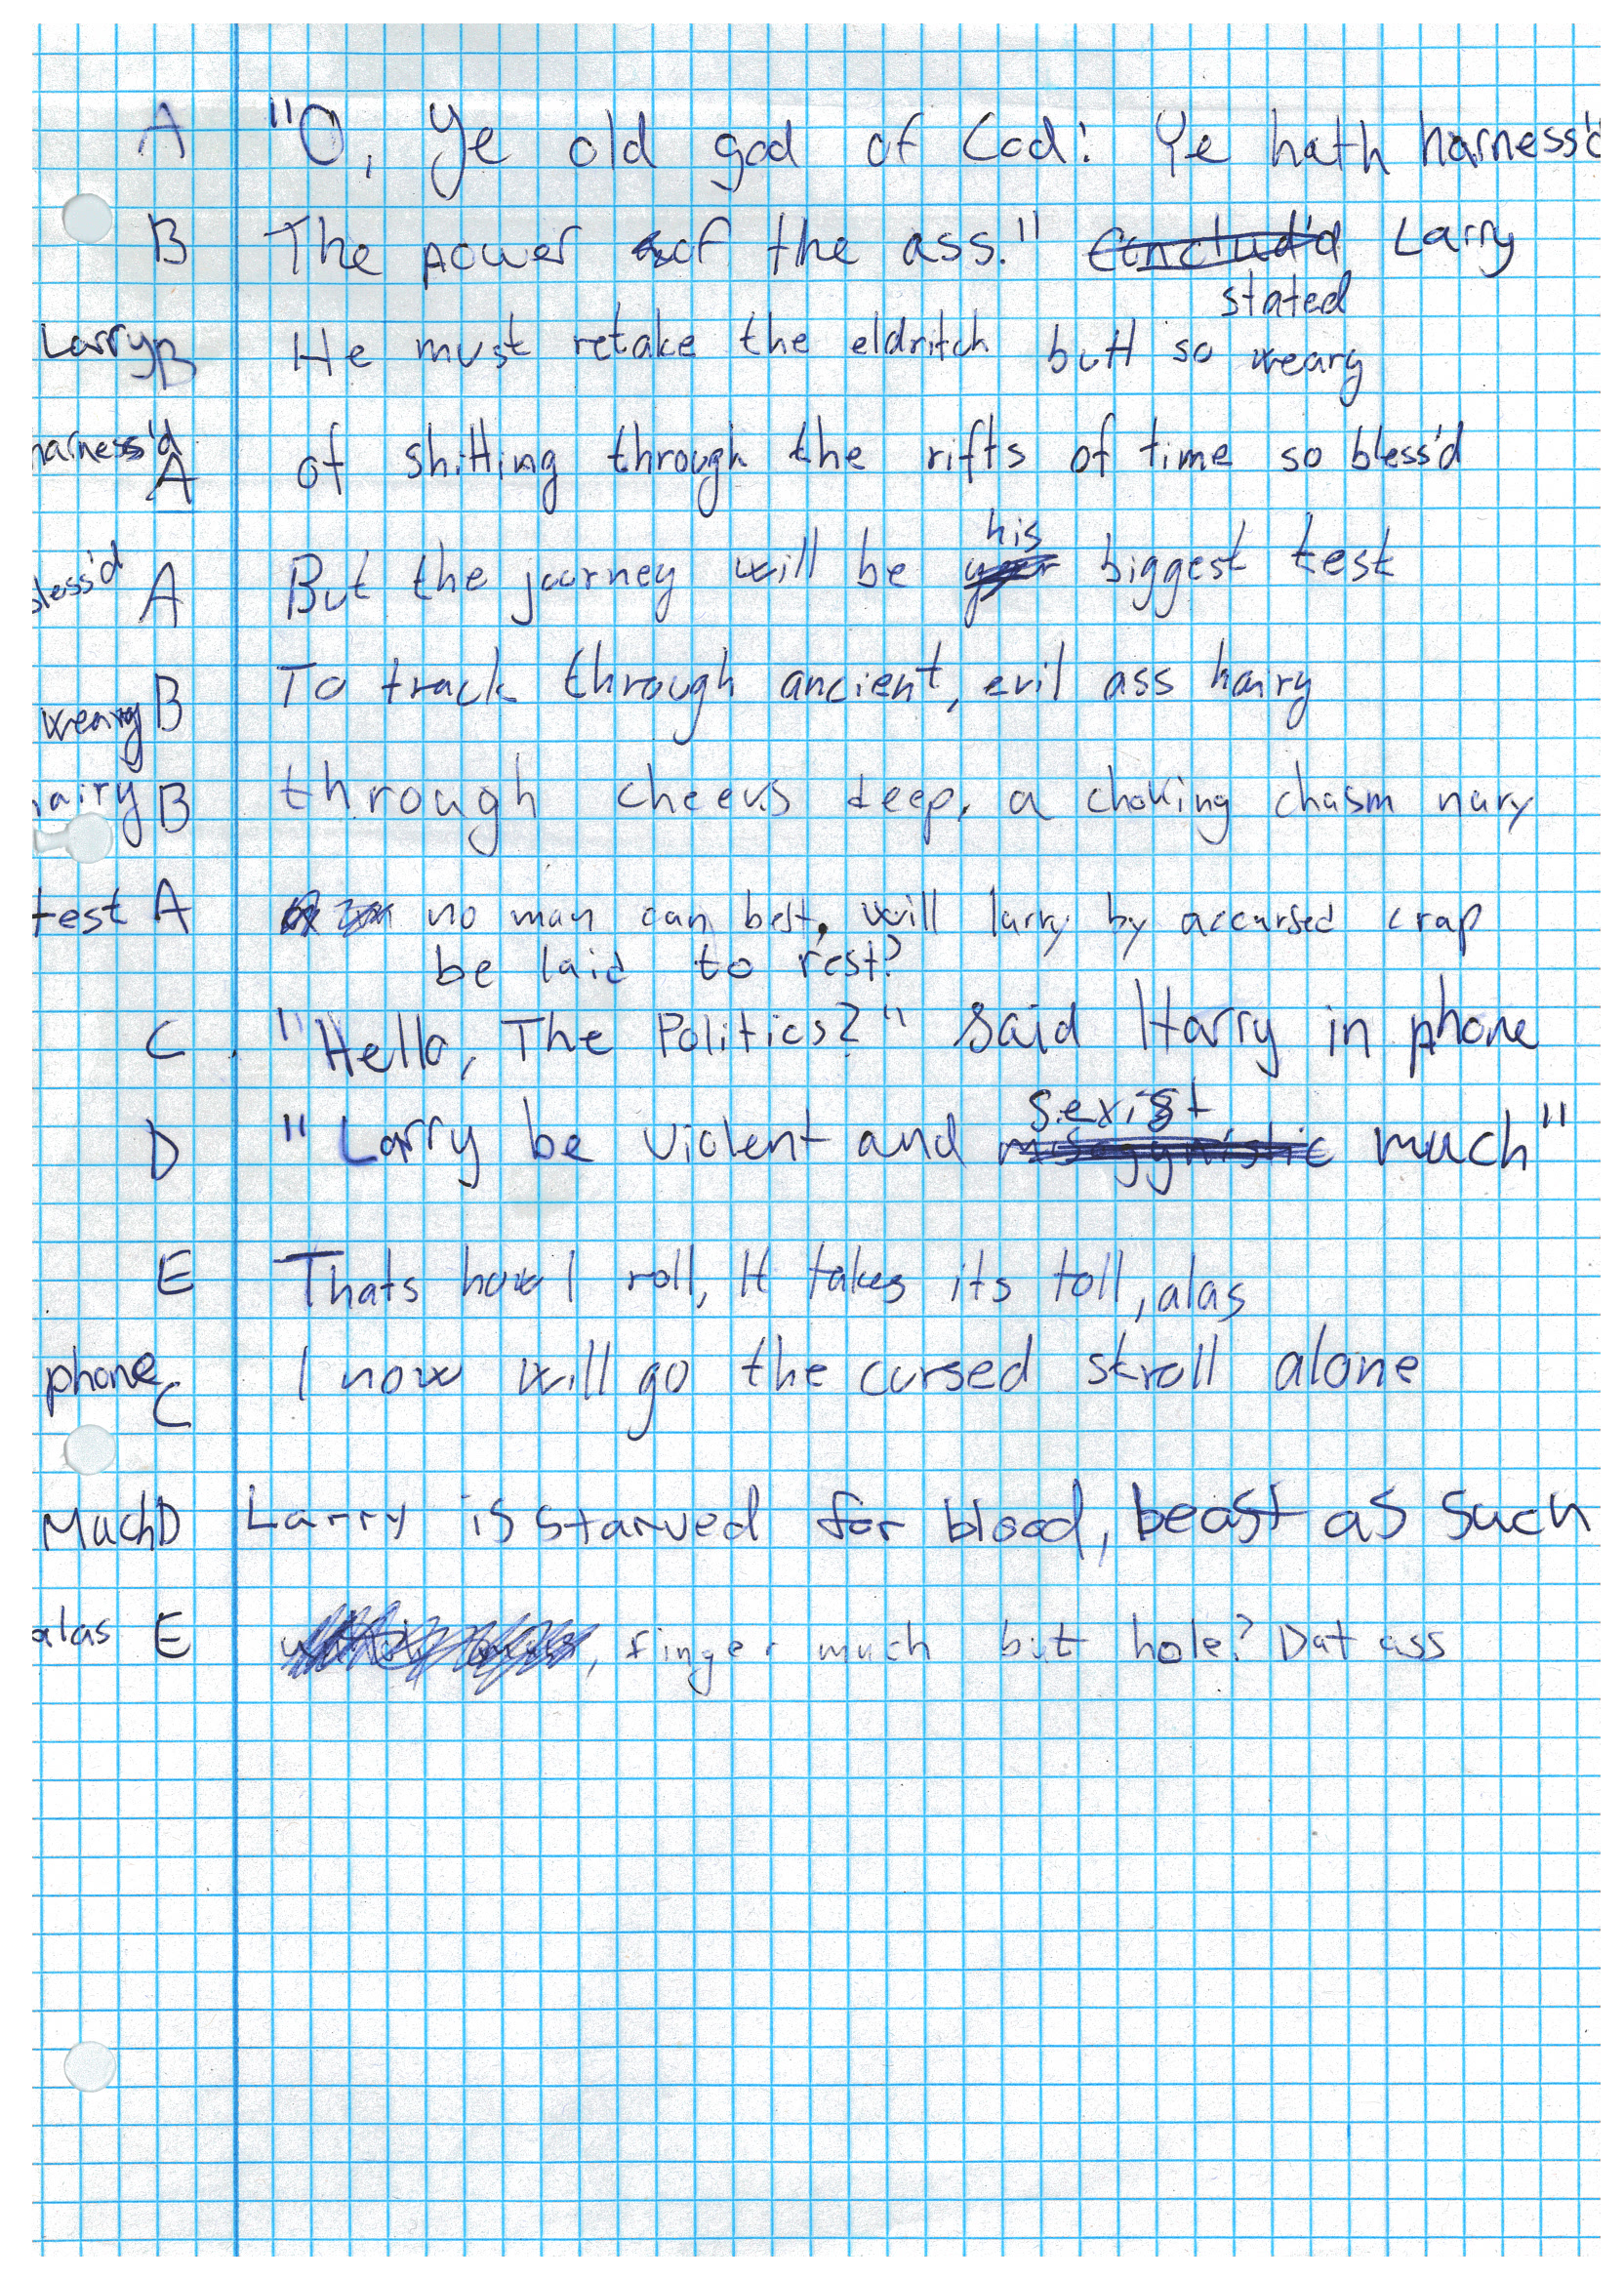 A "O, Ye old god of Cod! Ye hath harness'd
B The power of the ass." Larry
stated
Larry B He must retake the eldritch butt so weary
harness'd A of shitting through the rifts of time so bless'd
his
bless'd A But the journey will be biggest test
weary B To track through ancient, evil ass hairy
hairy B through cheeks deep, a choking chasm nary
test A no man can best, will larry by accursed crap
be laid to rest?
C "Hello, The Politics?" said Harry in phone
sexist
D "Larry be violent and misogynistic much"
E Thats how I roll, It takes its toll, alas
phone C I now will go the cursed stroll alone
Much D Larry is starved for blood, beast as such
alas E , finger much but hole? Dat ass